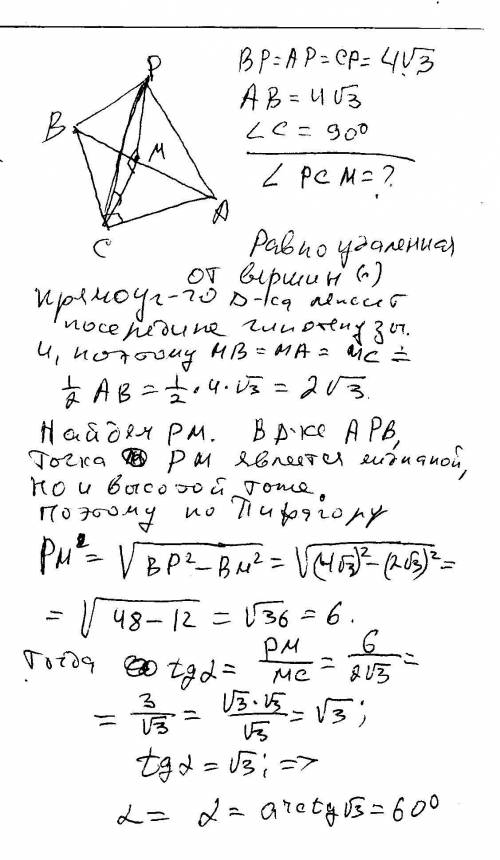 P
B
M
A
C
BP=AP=CP=4√3
AB=4√3
∠C=90°
∠PCM=?
Равноудаленная
от вершин (·)
прямоуг-го Δ-ка лежит
посередине гипотенузы.
И, поэтому MB=MA=MC=
1/2 AB=1/2·4·√3=2√3.
Найдем PM. В Δ-ке APB,
точка PM является медианой,
но и высотой тоже.
Поэтому по Пифагору
PM²=√(BP²-BM²)=√((4√3)²-(2√3)²)=
=√(48-12)=√36=6.
Тогда tgα=PM/MC=6/2√3=
=3/√3=√3·√3/√3=√3;
tgα=√3; =>
α= α=arctg√3=60°